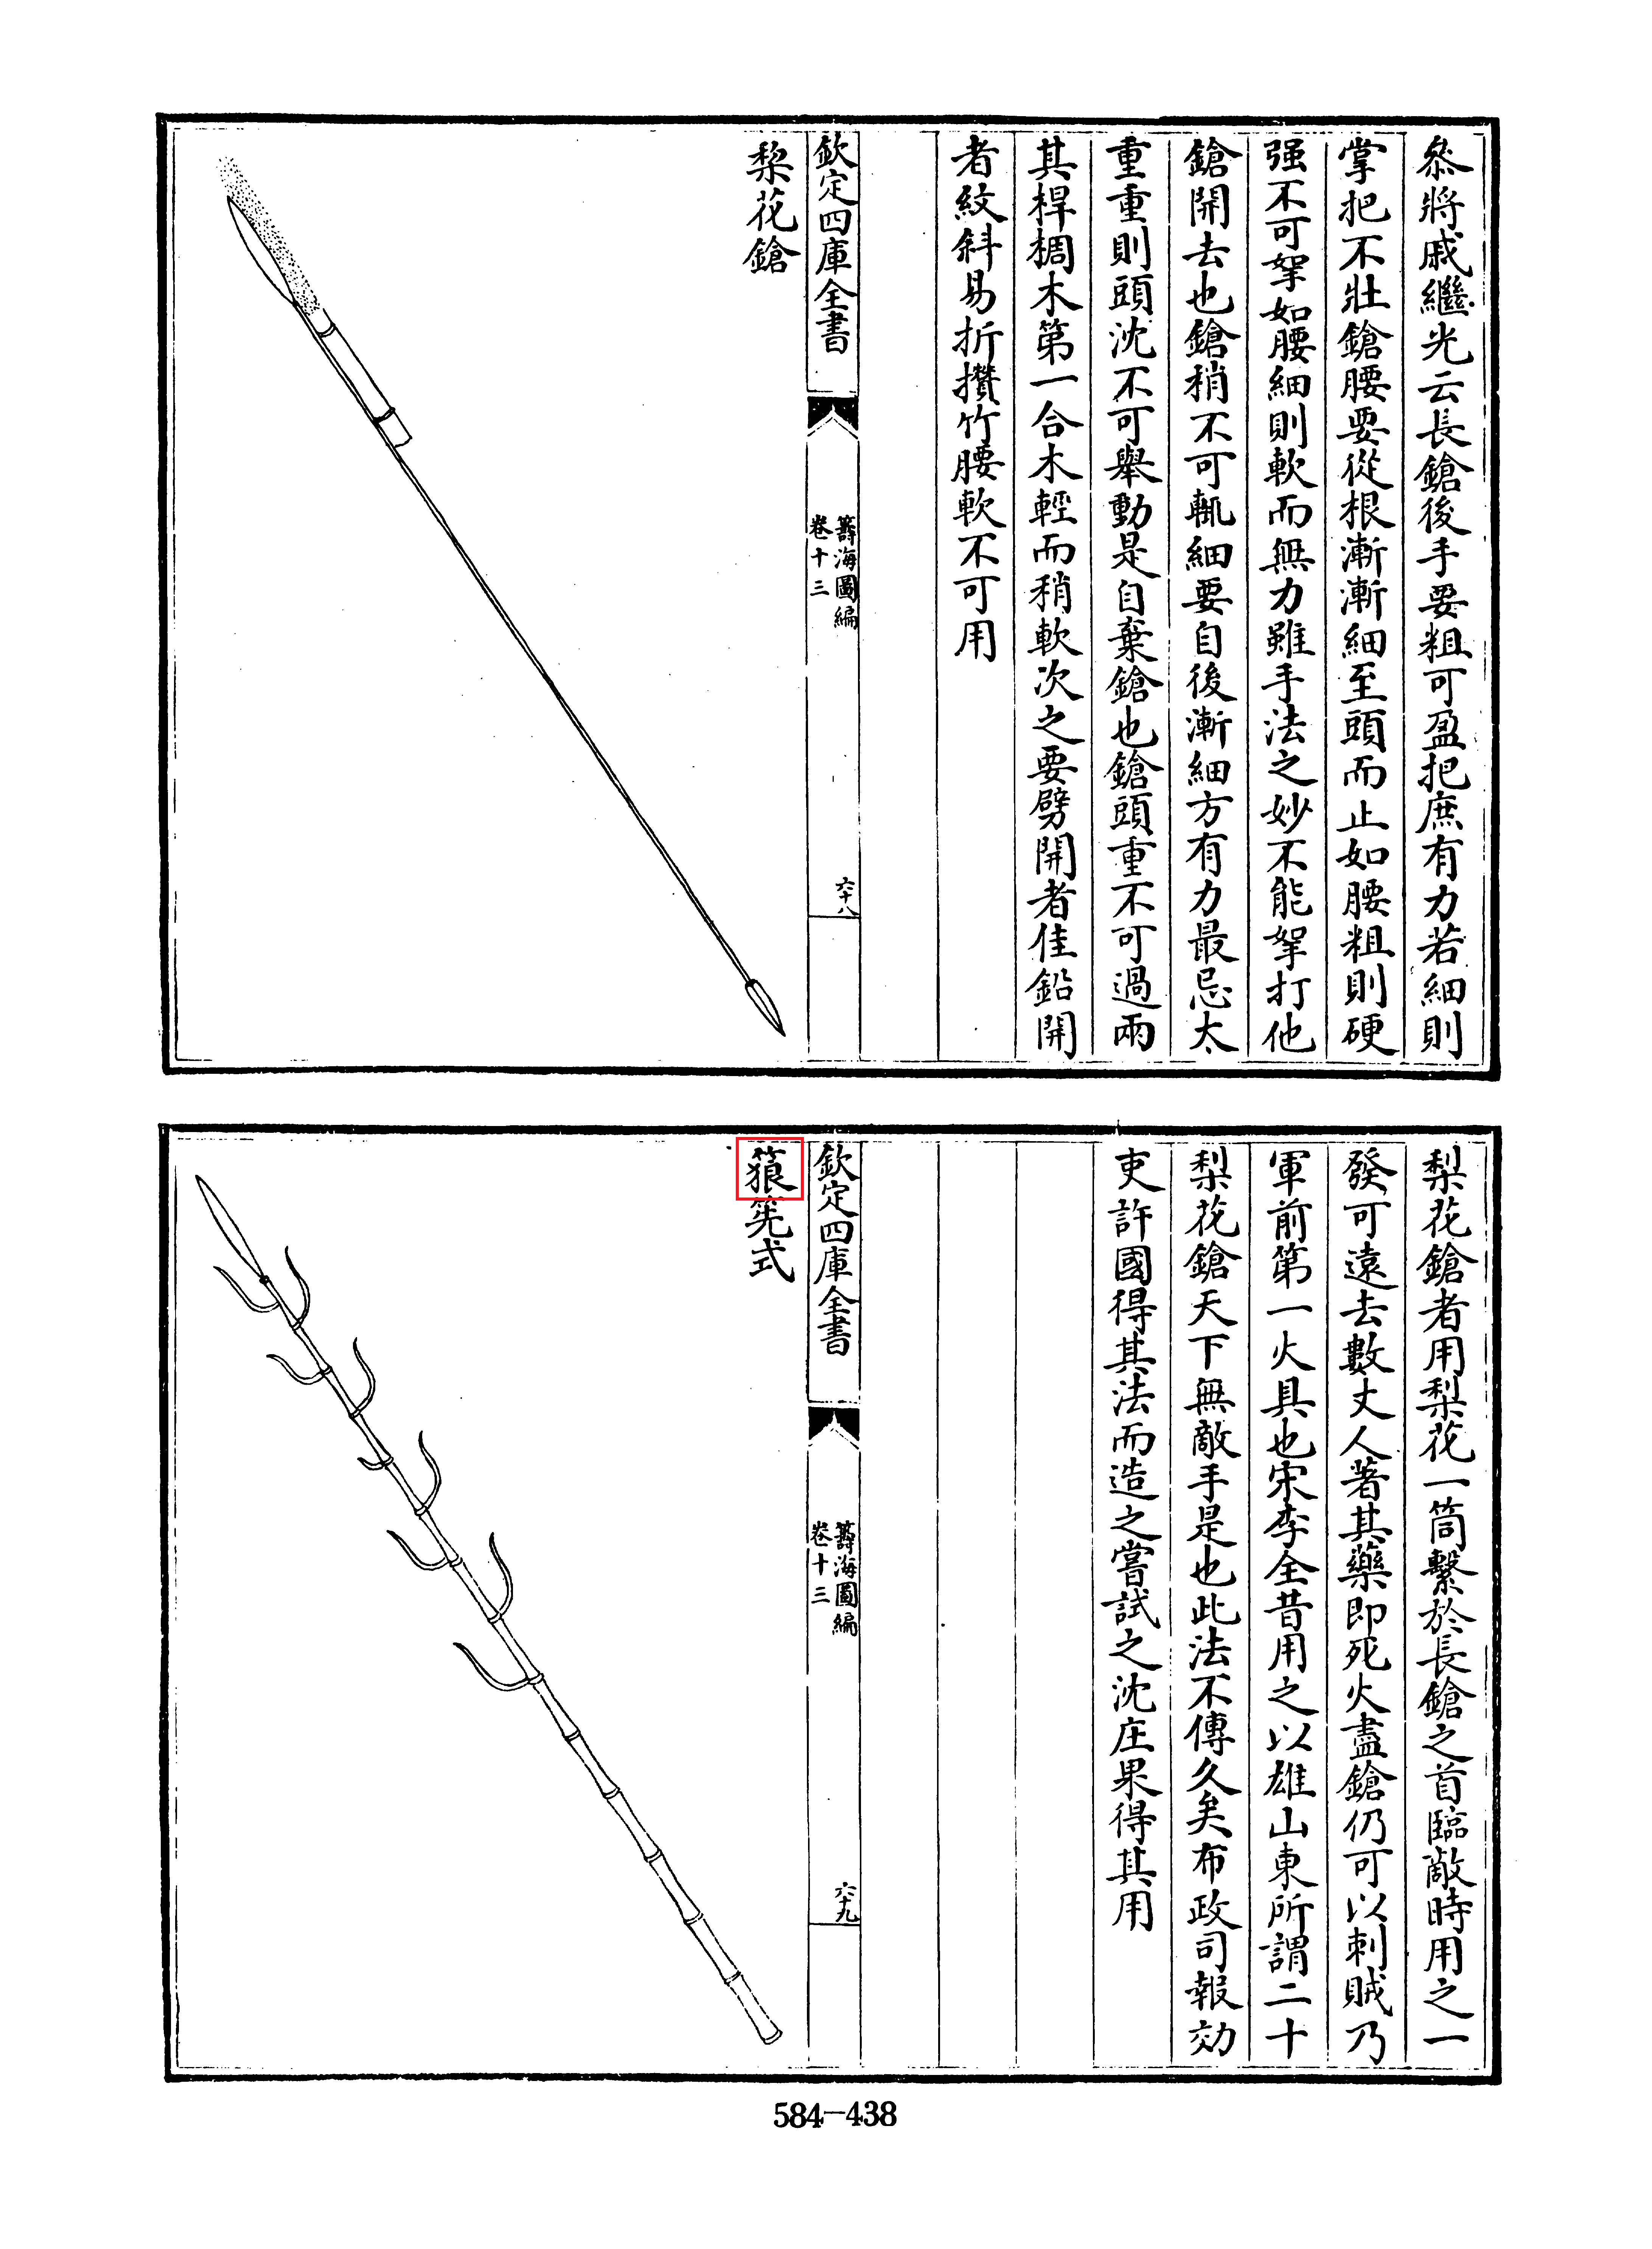 叅將戚繼光云長鎗後手要粗可盈把庶有力若細則
掌把不壯鎗腰要從根漸漸細至頭而止如腰粗則硬
强不可拏如腰細則軟而無力雖手法之妙不能拏打他
鎗開去也鎗稍不可輒細要自後漸細方有力最忌太
重重則頭沈不可舉動是自棄鎗也鎗頭重不可過兩
其桿椆木第一合木輕而稍軟次之要劈開者佳鉛開
者紋斜易折攢竹腰軟不可用
欽定四庫全書
籌海圖編
卷十三
六十八
棃花鎗
梨花鎗者用梨花一筒繫於長鎗之首臨敵時用之一
發可遠去數丈人著其藥即死火盡鎗仍可以刺賊乃
軍前第一火具也宋李全昔用之以雄山東所謂二十
梨花鎗天下無敵手是也此法不傳久矣布政司報効
吏許國得其法而造之嘗試之沈庄果得其用
欽定四庫全書
籌海圖編
卷十三
六十九
筅式
584-438